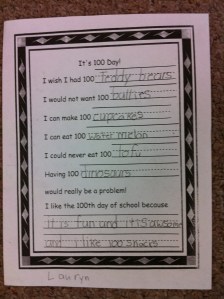 It's 100 Day!
I wish I had 100 teddy bears
I would not want 100 bullies
I can make 100 cupcakes
I can eat 100 water melon
I could never eat 100 tofu
Having 100 dinosaurs
would really be a problem!
I like the 100th day of school because
It is fun and it's awesome
and I like 100 snacks
Lauryn